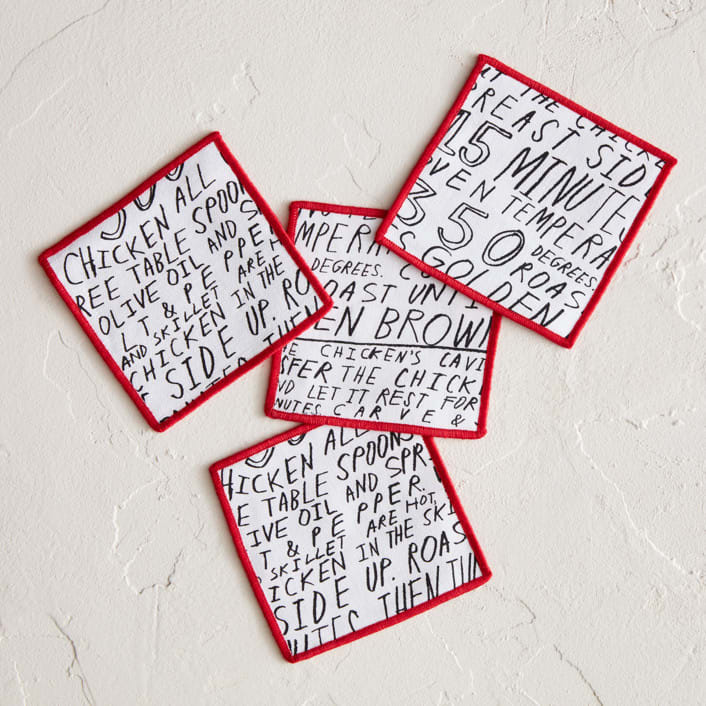 CHICKEN ALL
REE TABLE SPOON
OLIVE OIL AND S
LT. & PE PPER.
AND SKILLET ARE
CHICKEN IN THE
SIDE UP. RO
THEN
THE CHICKE
REAST SID
15 MINUTE
VEN TEMPERA
350 DEGREES.
ROAS
GOLDEN
MPER
DEGREES. C
OAST UNTI
EN BROWN
E CHICKEN'S CAVI
SFER THE CHICK
ND LET IT REST FOR
NUTES CARVE &
HICKEN ALL
E TABLE SPOONS
IVE OIL AND SPR
T & PE PPER.
SKILLET ARE HOT,
ICKEN IN THE SKI
SIDE UP. ROAS
NUTES THEN TU